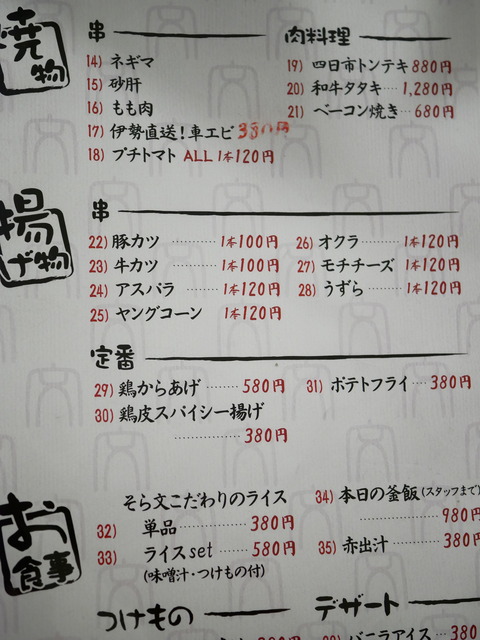 焼物
串
14) ネギマ
15) 砂肝
16) もも肉
17) 伊勢直送!車エビ
18) プチトマト ALL 1本120円
肉料理
19) 四日市トンテキ 880円
20) 和牛タタキ‥‥ 1,280円
21) ベーコン焼き‥‥ 680円
揚げ物
串
22) 豚カツ ‥‥‥‥ 1本100円
23) 牛カツ ‥‥‥‥ 1本100円
24) アスパラ ‥‥‥‥ 1本120円
25) ヤングコーン 1本120円
26) オクラ‥‥‥‥ 1本120円
27) モチチーズ 1本120円
28) うずら‥‥‥‥ 1本120円
定番
29) 鶏からあげ ‥‥‥‥ 580円
30) 鶏皮スパイシー揚げ
‥‥‥‥‥‥‥‥ 380円
31) ポテトフライ‥‥ 380円
お食事
そら文こだわりのライス
32) 単品‥‥‥‥‥‥ 380円
33) ライスset ‥‥‥‥ 580円
(味噌汁・つけもの付)
34) 本日の釜飯(スタッフまで)
‥‥‥‥‥‥‥‥ 980円
35) 赤出汁‥‥‥‥‥‥ 380円
つけもの
デザート
バニラアイス‥‥ 380